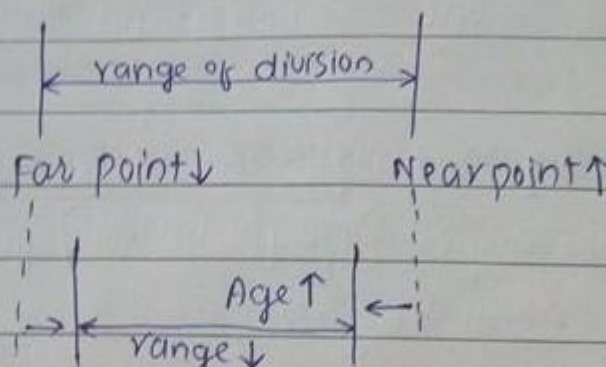 range of diursion
Far point↓ Near point↑
Age ↑
range ↓